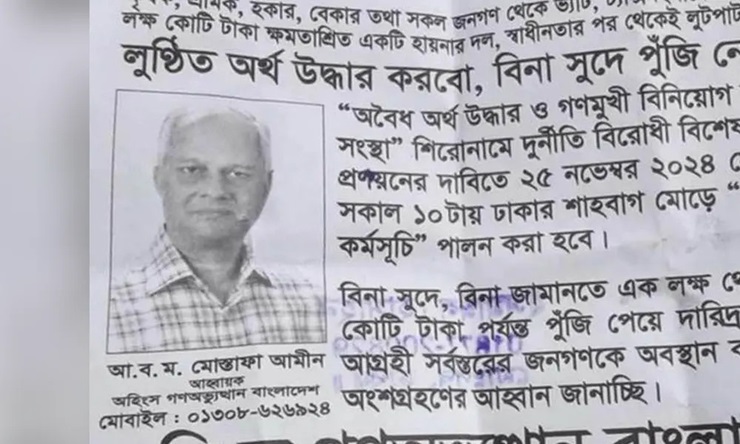 শ্রমিক, হকার, বেকার তথা সকল জনগণ থেকে ভ্যাট,
লক্ষ কোটি টাকা ক্ষমতাশ্রিত একটি হায়নার দল, স্বাধীনতার পর থেকেই লুটপাট
লুণ্ঠিত অর্থ উদ্ধার করবো, বিনা সুদে পুঁজি
“অবৈধ অর্থ উদ্ধার ও গণমুখী বিনিয়োগ
সংস্থা” শিরোনামে দুর্নীতি বিরোধী বিশেষ
প্রণয়নের দাবিতে ২৫ নভেম্বর ২০২৪
সকাল ১০টায় ঢাকার শাহবাগ মোড়ে “
কর্মসূচি” পালন করা হবে।
বিনা সুদে, বিনা জামানতে এক লক্ষ
কোটি টাকা পর্যন্ত পুঁজি পেয়ে দারিদ্র
আগ্রহী সর্বস্তরের জনগণকে অবস্থান
অংশগ্রহণের আহ্বান জানাচ্ছি।
আ.ব.ম. মোস্তাফা আমীন
আহ্বায়ক
অহিংস গণঅভ্যুত্থান বাংলাদেশ
মোবাইল : ০১৩০৮-৬২৬৯২৪